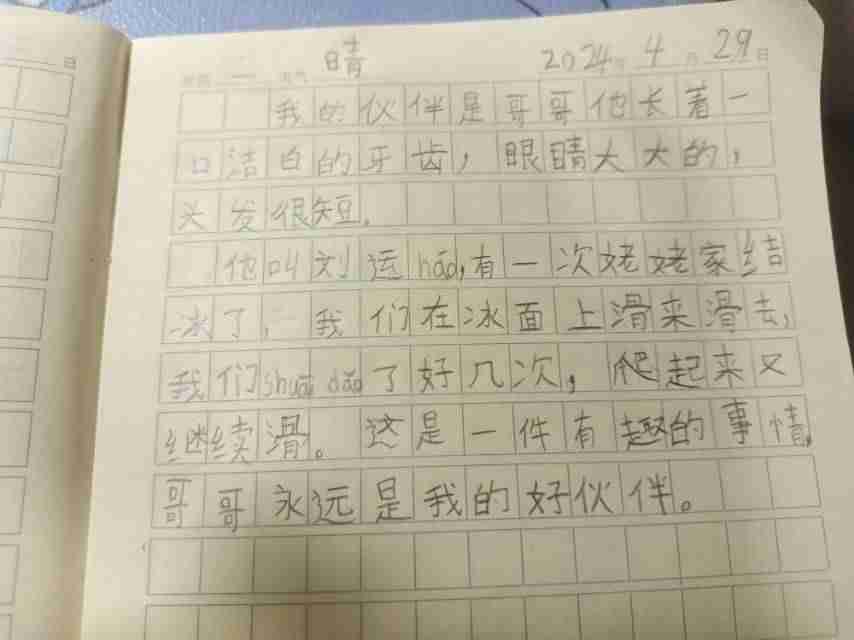 星期 一 天气 晴 2024年 4 月 29 日
我的伙伴是哥哥他长着一
口洁白的牙齿，眼睛大大的，
头发很短.
他叫刘运hāo,有一次姥姥家结
冰了，我们在冰面上滑来滑去,
我们shuāi dǎo了好几次，爬起来又
继续滑。这是一件有趣的事情,
哥哥永远是我的好伙伴。
日